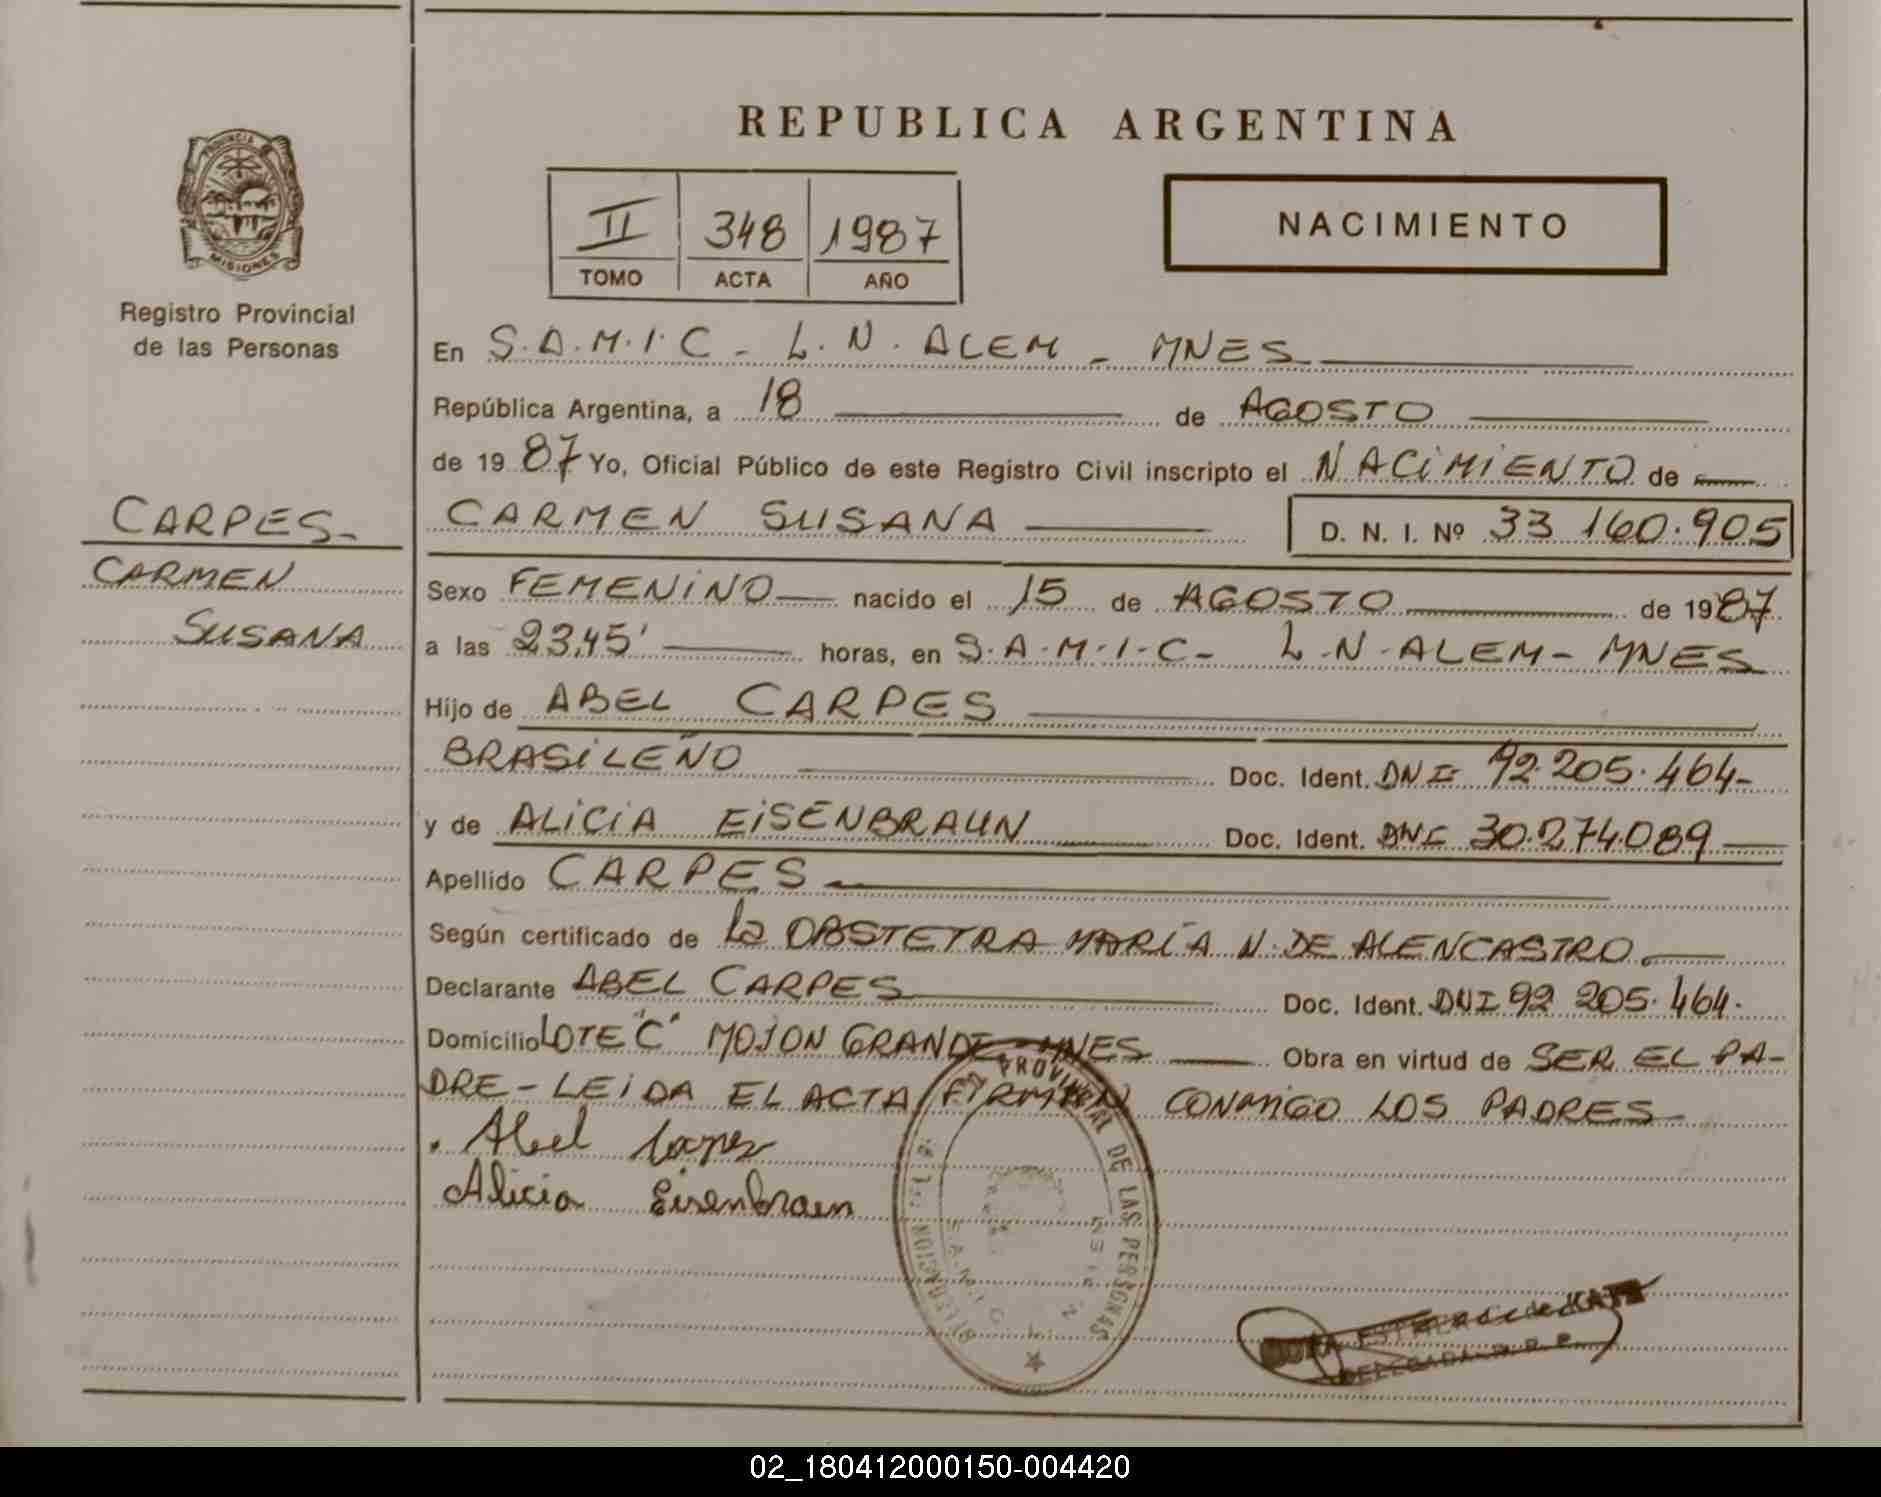 REPUBLICA ARGENTINA
PROVINCIA
MISIONES
Registro Provincial
de las Personas
II 348 1987
TOMO ACTA AÑO
NACIMIENTO
En S.A.M.I.C - L.N. ALEM - MNES
República Argentina, a 18 de AGOSTO
de 1987 Yo, Oficial Público de este Registro Civil inscripto el NACIMIENTO de
CARMEN SUSANA D. N. I. Nº 33 160.905
CARPES-
CARMEN
SUSANA
Sexo FEMENINO nacido el 15 de AGOSTO de 1987
a las 23,45' horas, en S.A.M.I.C- L.N-ALEM- MNES
Hijo de ABEL CARPES
BRASILEÑO Doc. Ident. DNI 92.205.464-
y de ALICIA EISENBRAUN Doc. Ident. DNI 30.274.089
Apellido CARPES
Según certificado de la OBSTETRA MARÍA N. DE ALENCASTRO
Declarante ABEL CARPES Doc. Ident. DNI 92 205.464.
Domicilio LOTE "C" MOJON GRANDE - MNES Obra en virtud de SER EL PA-
DRE - LEIDA EL ACTA FIRMAN CONMIGO LOS PADRES
Abel
Alicia Eisenbraun
PROVINCIAL DE LAS PERSONAS
DELEGACION
02_180412000150-004420